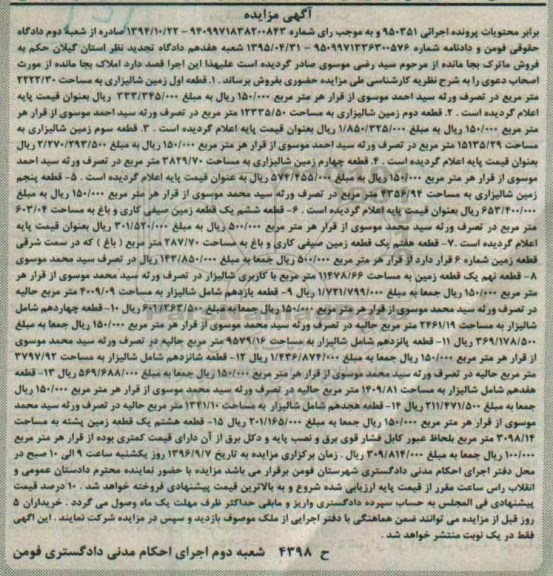 آگهی مزایده
برابر محتویات پرونده اجرائی ۹۵۰۳۵۱ و به موجب رای شماره ۹۴۰۹۹۷۱۸۳۸۲۰۰۸۴۳ – ۱۳۹۴/۱۰/۲۲ صادره از شعبه دوم دادگاه
حقوقی فومن و دادنامه شماره ۹۵۰۹۹۷۱۳۳۶۳۰۰۵۷۶ – ۱۳۹۵/۰۴/۳۱ شعبه هفدهم دادگاه تجدید نظر استان گیلان حکم به
فروش ماترک بجا مانده از مرحوم سید رضی موسوی صادر گردیده است علیهذا این اجرا قصد دارد املاک بجا مانده از مورث
اصحاب دعوی را به شرح نظریه کارشناسی طی مزایده حضوری بفروش برساند . ۱. قطعه اول زمین شالیزاری به مساحت ۲۲۲۲/۳۰
متر مربع در تصرف ورثه سید احمد موسوی از قرار هر متر مربع ۱۵۰/۰۰۰ ریال به مبلغ ۳۳۳/۳۴۵/۰۰۰ ریال بعنوان قیمت پایه
اعلام گردیده است . ۲. قطعه دوم زمین شالیزاری به مساحت ۱۲۳۳۵/۵۰ متر مربع در تصرف ورثه سید احمد موسوی از قرار هر
متر مربع ۱۵۰/۰۰۰ ریال به مبلغ ۱/۸۵۰/۳۲۵/۰۰۰ ریال بعنوان قیمت پایه اعلام گردیده است . ۳. قطعه سوم زمین شالیزاری به
مساحت ۱۵۱۳۵/۲۹ متر مربع در تصرف ورثه سید احمد موسوی از قرار هر متر مربع ۱۵۰/۰۰۰ ریال به مبلغ ۲/۲۷۰/۲۹۳/۵۰۰ ریال
بعنوان قیمت پایه اعلام گردیده است . ۴. قطعه چهارم زمین شالیزاری به مساحت ۳۸۲۹/۷۰ متر مربع در تصرف ورثه سید احمد
موسوی از قرار هر متر مربع ۱۵۰/۰۰۰ ریال به مبلغ ۵۷۴/۴۵۵/۰۰۰ ریال به عنوان قیمت پایه اعلام گردیده است . ۵- قطعه پنجم
زمین شالیزاری به مساحت ۴۳۵۶/۹۴ متر مربع در تصرف ورثه سید محمد موسوی از قرار هر متر مربع ۱۵۰/۰۰۰ ریال به مبلغ
۶۵۳/۴۰۰/۰۰۰ ریال بعنوان قیمت پایه اعلام گردیده است . ۶- قطعه ششم یک قطعه زمین صیفی کاری و باغ به مساحت ۶۰۳/۰۴
متر مربع در تصرف ورثه سید محمد موسوی از قرار هر متر مربع ۵۰۰/۰۰۰ ریال به مبلغ ۳۰۱/۵۲۰/۰۰۰ ریال بعنوان قیمت پایه
اعلام گردیده است .۷- قطعه هفتم یک قطعه زمین صیفی کاری و باغ به مساحت ۲۸۷/۷۰ متر مربع ( باغ ) که در سمت شرقی
قطعه زمین شماره ۶ قرار دارد از قرار هر متر مربع ۵۰۰/۰۰۰ ریال جمعا به مبلغ ۱۴۳/۸۵۰/۰۰۰ ریال در تصرف سید محمد موسوی
۸- قطعه نهم یک قطعه زمین به مساحت ۱۱۴۷۸/۶۶ متر مربع با کاربری شالیزار در تصرف ورثه سید محمد موسوی از قرار هر
متر مربع ۱۵۰/۰۰۰ ریال جمعا به مبلغ ۱/۷۲۱/۷۹۹/۰۰۰ ریال ۹- قطعه یازدهم شامل شالیزار به مساحت ۴۰۰۹/۰۹ متر مربع حالیه
در تصرف ورثه سید محمد موسوی از قرار هر متر مربع ۱۵۰/۰۰۰ ریال جمعا به مبلغ ۶۰۱/۳۶۳/۵۰۰ ریال ۱۰- قطعه چهاردهم شامل
شالیزار به مساحت ۲۴۶۱/۱۹ متر مربع حالیه در تصرف ورثه سید محمد موسوی از قرار هر متر مربع ۱۵۰/۰۰۰ ریال جمعا به مبلغ
۳۶۹/۱۷۸/۵۰۰ ریال ۱۱- قطعه پانزدهم شامل شالیزار به مساحت ۹۵۷۹/۱۶ متر مربع حالیه در تصرف ورثه سید محمد موسوی
از قرار هر متر مربع ۱۵۰/۰۰۰ ریال جمعا به مبلغ ۱/۴۳۶/۸۷۴/۰۰۰ ریال ۱۲- قطعه شانزدهم شامل شالیزار به مساحت ۳۷۹۷/۹۲
متر مربع حالیه در تصرف ورثه سید محمد موسوی از قرار هر متر مربع ۱۵۰/۰۰۰ ریال جمعا به مبلغ ۵۶۹/۶۸۸/۰۰۰ ریال ۱۳- قطعه
هفدهم شامل شالیزار به مساحت ۱۴۰۹/۸۱ متر مربع حالیه در تصرف ورثه سید محمد موسوی از قرار هر متر مربع ۱۵۰/۰۰۰ ریال
جمعا به مبلغ ۲۱۱/۴۷۱/۵۰۰ ریال ۱۴- قطعه هجدهم شامل شالیزار به مساحت ۱۳۴۱/۱۰ متر مربع حالیه در تصرف ورثه سید محمد
موسوی از قرار هر متر مربع ۱۵۰/۰۰۰ ریال جمعا به مبلغ ۲۰۱/۱۶۵/۰۰۰ ریال ۱۵- قطعه هشتم یک قطعه زمین پشته به مساحت
۳۰۹۸/۱۴ متر مربع بلحاظ عبور کابل فشار قوی برق و نصب پایه و دکل برق از آن دارای قیمت کمتری بوده از قرار هر متر مربع
۱۰۰/۰۰۰ ریال به مبلغ ۳۰۹/۸۱۴/۰۰۰ ریال . زمان برگزاری مزایده به تاریخ ۱۳۹۶/۹/۷ روز یکشنبه ساعت ۹ الی ۱۰ صبح در
محل دفتر اجرای احکام مدنی دادگستری شهرستان فومن برقرار می باشد مزایده با حضور نماینده محترم دادستان عمومی و
انقلاب راس ساعت مقرر از قیمت پایه ارزیابی شده شروع و به بالاترین قیمت پیشنهادی فروخته خواهد شد . ۱۰ درصد قیمت
پیشنهادی فی المجلس به حساب سپرده دادگستری واریز و مابقی حداکثر ظرف مهلت یک ماه وصول می گردد . خریداران ۵
روز قبل از مزایده می توانند ضمن هماهنگی با دفتر اجرایی از ملک موصوف بازدید و سپس در مزایده شرکت نمایند . این آگهی
فقط در یک نوبت منتشر خواهد شد .
ح ۴۳۹۸ شعبه دوم اجرای احکام مدنی دادگستری فومن